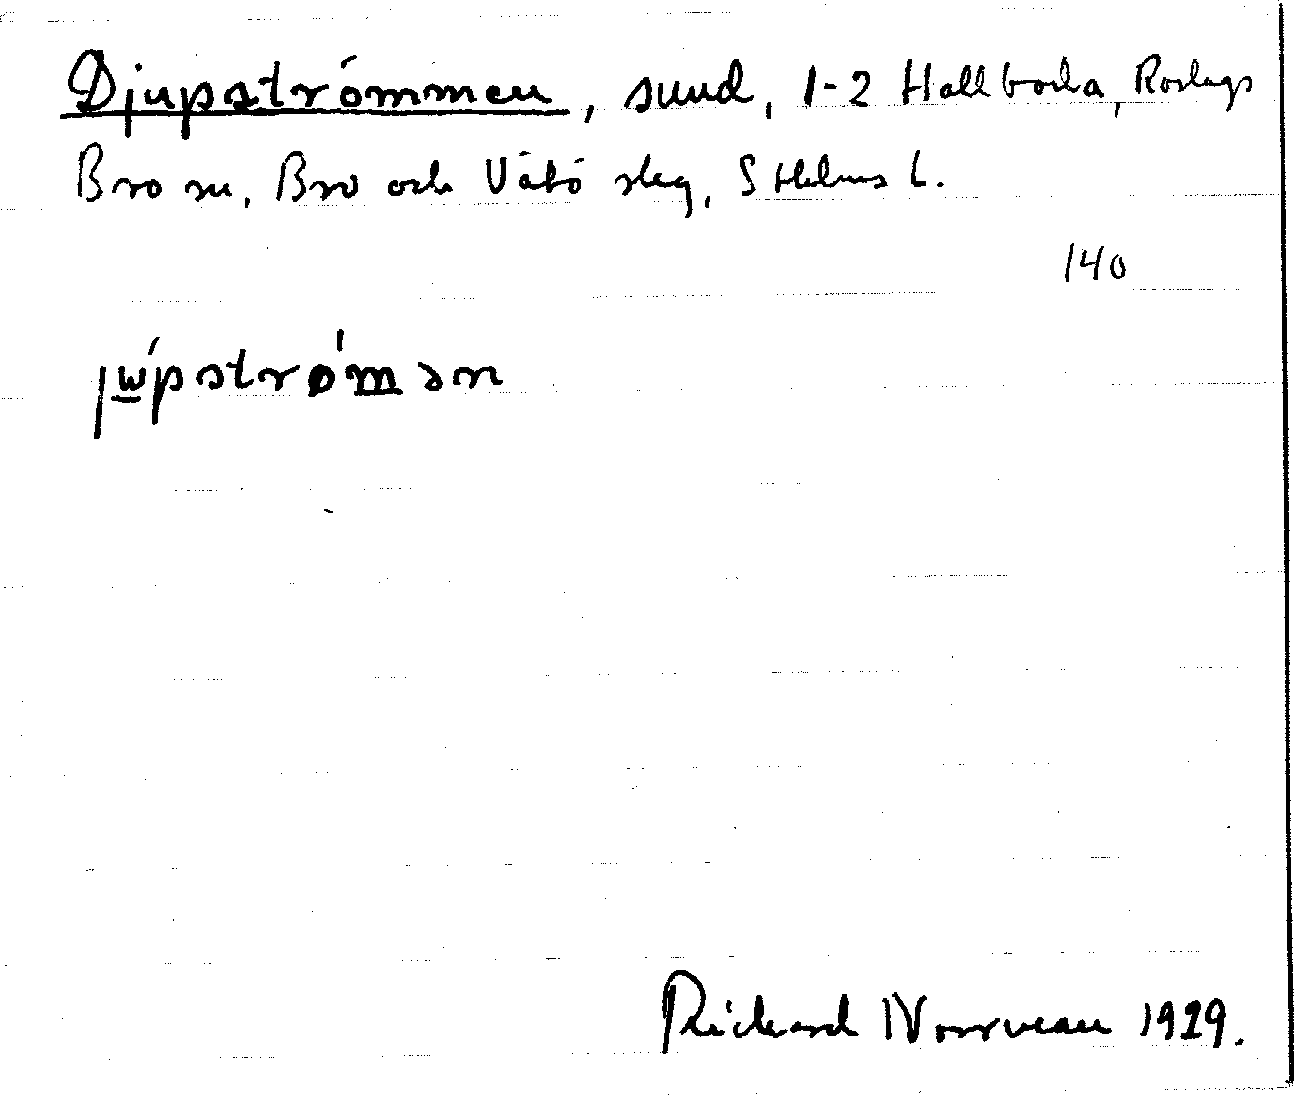 Djupströmmen, sund, 1-2 Hallboda, Roslags
Bro sn, Bro och Vätö skg, Sthlms l.
140
jɯ́pstrø̍mən
Richard Norrveau 1929.